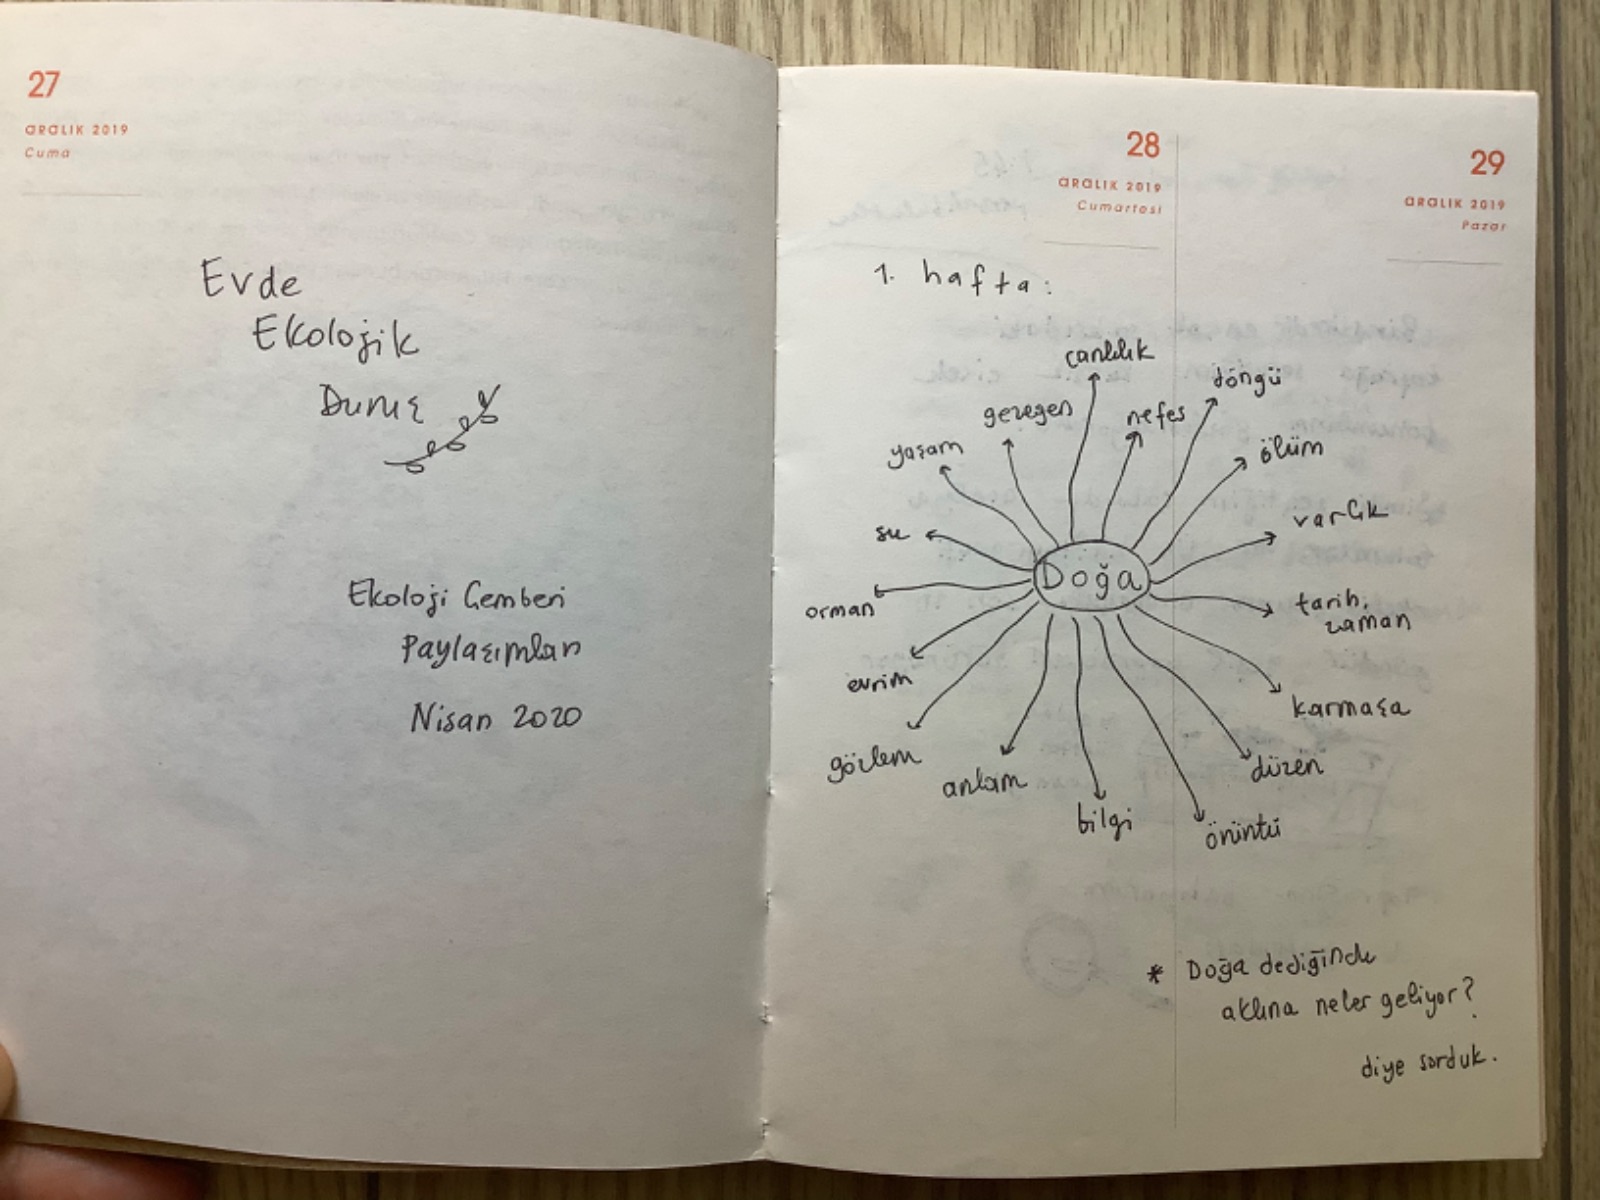 27
ARALIK 2019
Cuma
Evde
Ekolojik
Duruş
Ekoloji Çemberi
Paylaşımları
Nisan 2020
28
ARALIK 2019
Cumartesi
29
ARALIK 2019
Pazar
1. hafta:
canlılık
döngü
gezegen
nefes
yaşam
ölüm
su
varlık
Doğa
orman
tarih,
zaman
evrim
karmaşa
gözlem
anlam
düzen
bilgi
örüntü
* Doğa dediğinde
aklına neler geliyor?
diye sorduk.